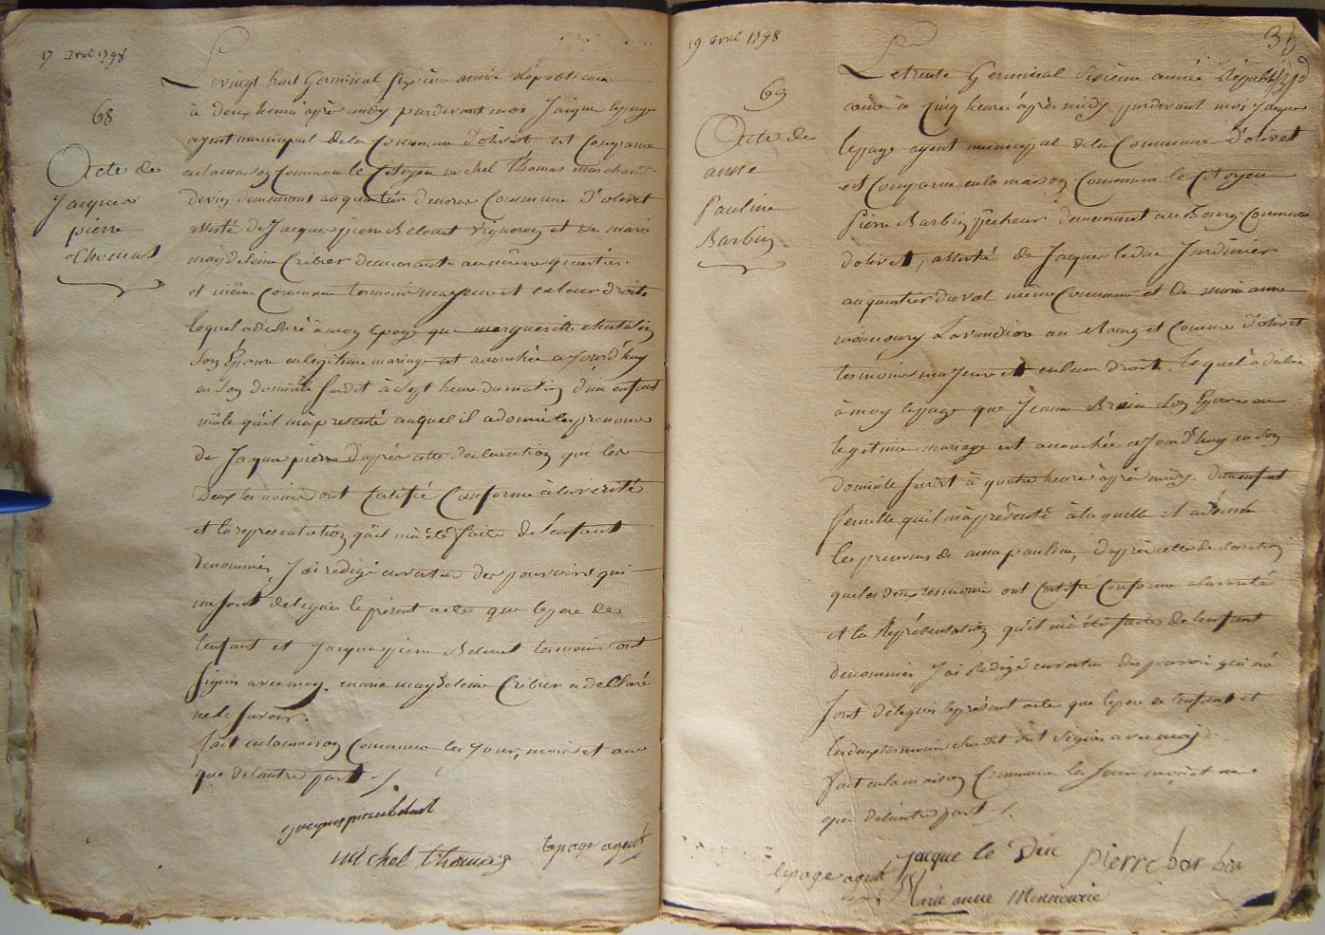 17 avril 1798
68
Acte de
Jacques
pierre
Thomas
Le vingt huit Germinal sixième année républicaine
à deux heures après midy pardevant moi Jacque lepage
agent municipal de la Commune d'olivet est Comparu
en la maison Commune le Citoyen michel Thomas marchand
de vin demeurant au quartier Commune d'olivet
assisté de Jacque pierre vigneron et de marie
magdeleine Cribier demeurants au même quartier
et même Commune temoins majeurs et en leur droits
lequel a déclaré à moy lepage que marguerite
son Epouse en legitime mariage est accouchée aJourd'huy
en son domicile susdit à sept heure du matin d'un enfant
mâle qu'il m'a présenté auquel il a donné les prenoms
de Jacque pierre d'après cette declaration que les
deux temoins ont Certifié Conforme à la verité
et la representation qu'il m'a été faite de l'enfant
denommé, J'ai redigé en vertu des pouvoirs qui
me sont delegués le présent acte que le pere de
l'enfant et Jacque pierre temoins ont
signés avec moy. marie magdeleine Cribier a déclaré
ne le savoir.
fait en la maison Commune les jour, mois et an
que de l'autre part
jacque pierre
michel thomas lepage agent
19 avril 1798
36
69
Acte de
anne
pauline
Barbin
Le trente Germinal sixième année républi
caine à Cinq heures après midy pardevant moi Jacques
lepage agent municipal de la Commune d'olivet
est Comparu en la maison Commune le Citoyen
pierre Barbin pêcheur demeurant au Bourg Commune
d'olivet, assisté de Jacques leduc Jardinier
au quartier du val même Commune et de marie anne
au Bourg et Commune d'olivet
temoins majeurs et en leur droits. lequel a declaré
à moy lepage que Jeanne son Epouse en
legitime mariage est accouchée aJourd'huy en son
domicile susdit à quatre heures après midy. d'un enfant
femelle qu'il m'a présenté à laquelle il a donné
les prenoms de anne pauline, d'après cette declaration
que les deux temoins ont Certifié Conforme à la verité
et la Représentation qu'il m'a été faite de l'enfant
denommé J'ai Rédigé en vertu des pouvoirs qui me
sont delegués le présent acte que le pere de l'enfant et
les deux temoins susdit ont signés avec moi
fait en la maison Commune les Jour mois et an
que de l'autre part
jacque le Duc pierre bar bin
lepage agent
Marie anne